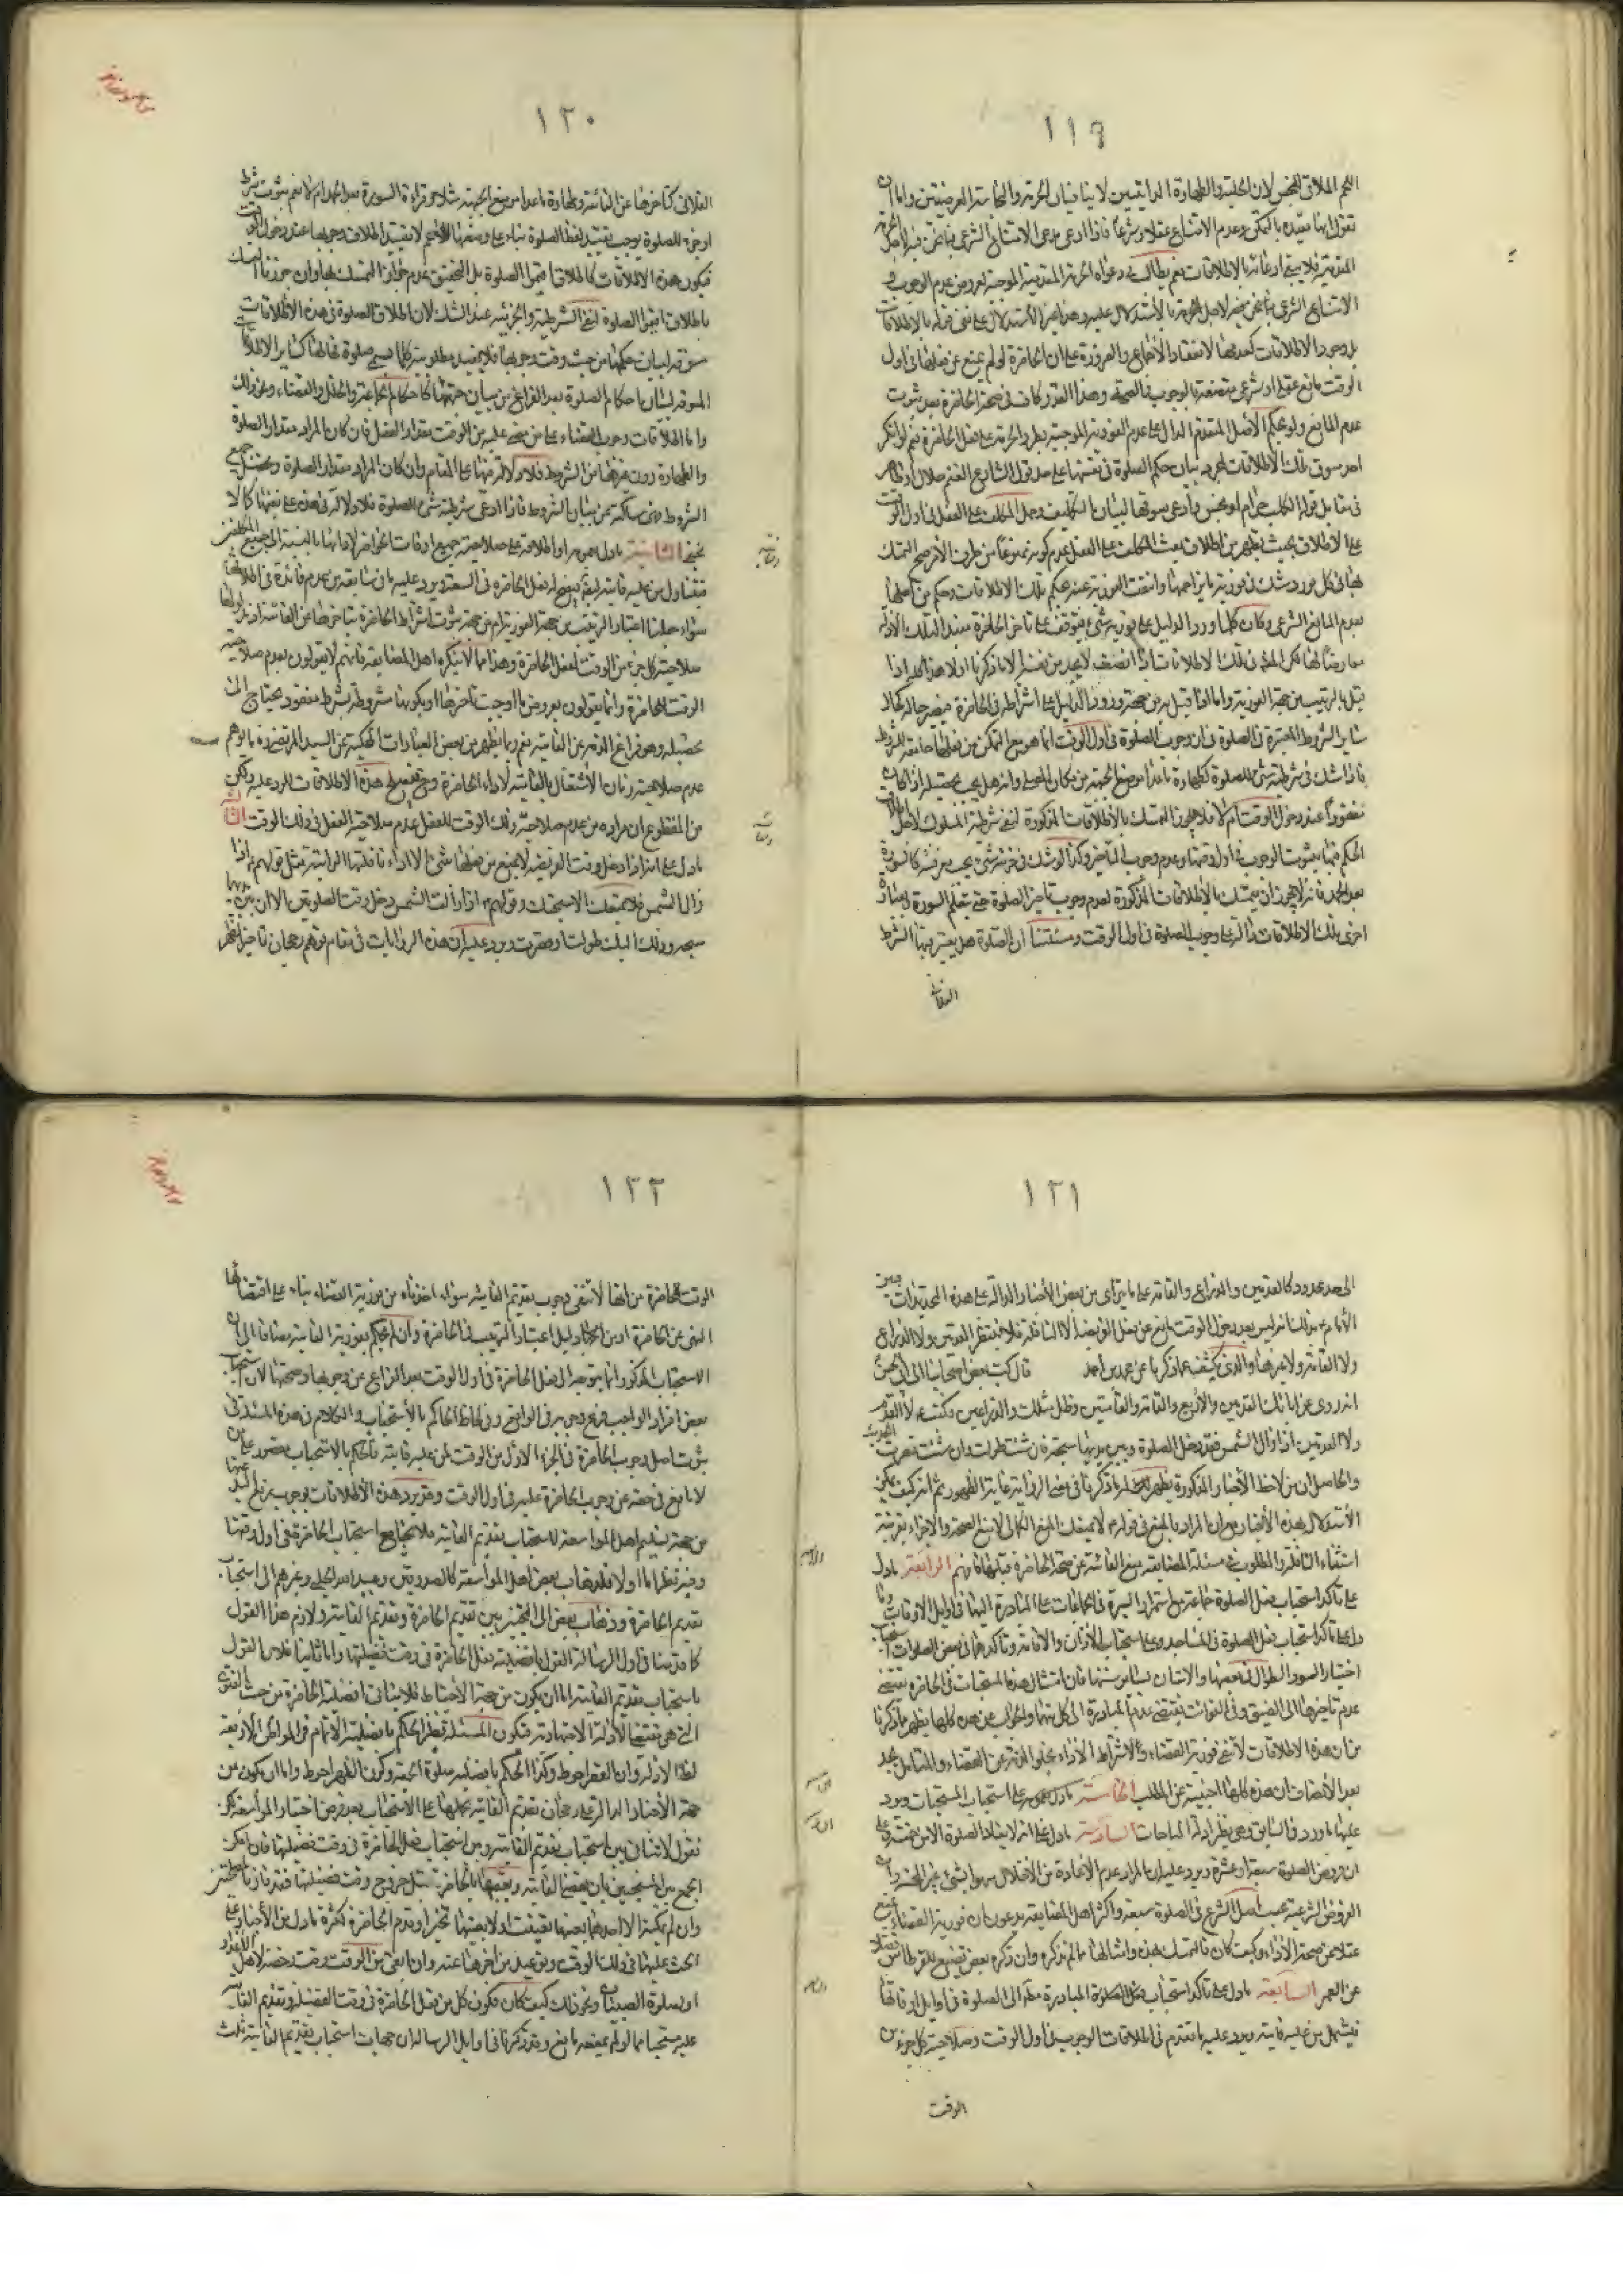 ١١٩
اللحم الملاقي للنجس لان الحلية والطهارة الذاتيتين لا ينافيان الحرمة والنجاسة العرضيتين واما ان
نقول انها مقيدة بالتمكن وعدم الامتناع عقلا وشرعا فاذا ادعى مدعي الامتناع الشرعي فيما نحن فيه لاجل
الفورية فلا يبقى ادعائه بالاطلاقات نعم يطالب في دعواه الموجبة لعروض عدم الوجوب و
الامتناع الشرعي
بل وجود الاطلاقات كعدمها لانعقاد الاجماع والضرورة على ان الحاضرة لو لم يمنع عن فعلها في اول
الوقت مانع عقلي او شرعي متصفة بالوجوب والصحة وهذا القدر كاف في صحة الحاضرة بعد ثبوت
عدم المانع ولو بحكم الاصل المتقدم الدال على عدم الفورية الموجبة لطرو الحرمة على فعل الحاضرة نعم لو انكر
احد سوق تلك الاطلاقات لمجرد بيان حكم الصلوة في نفسها على حد قول الشارع الغنم حلال او طاهر
في مقابل قوله الكلب حرام او نجس وادعى سوقها لبيان التكليف وحمل المكلف على الفعل في اول الوقت
على الاطلاق بحيث يظهر من اطلاق بعث المكلف على الفعل عدم كونه ممنوعا من طرف الآمر صح التمسك
بها في كل مورد شك في فورية ما يزاحمها وانتفت الفورية عنه بحكم تلك الاطلاقات وحكم من اجلها
بعدم المانع الشرعي وكان كلما ورد الدليل على فورية شئ يتوقف على تاخر الحاضرة مقيدا لتلك الادلة
معارضا لها لكن المنصف في تلك الاطلاقات اذا انصف لا يجد من نفسه الا ما ذكرنا اولا هذا كله اذا
قيل بالترتيب من جهة الفورية واما اذا قيل به من جهة ورود الدليل على اشتراطه في الحاضرة فيصير حاله كحال
ساير الشروط المعتبرة في الصلوة في ان وجوب الصلوة في اول الوقت انما هو مع التمكن من فعلها جامعة للشروط
فاذا شك في شرطية شئ للصلوة كطهارة ما عدا موضع الجبهة من مكان المصلي وانه هل يجب تحصيله اذا كان
مفقودا عند دخول الوقت ام لا فلا يجوز التمسك بالاطلاقات المذكورة لنفي شرطية المشكوك لاجل
الحكم فيها بثبوت الوجوب في اول وقتها وعدم وجوب التاخير وكذا لو شك في جزئية شئ يجب معرفته كالسورة
بعد الحمد فانه لا يجوز ان يتمسك بالاطلاقات المذكورة لعدم وجوب تاخير الصلوة حتى يتعلم السورة وبعبارة
اخرى تلك الاطلاقات دالة على وجوب الصلوة في اول الوقت ومسئلتنا ان الصلوة هل يعتبر فيها الشرط
الفلاني
١٢٠
الفلاني كتاخرها عن الفائتة وطهارة ما عدا موضع الجبهة مثلا وقراءة السورة بعد الحمد ام لا نعم ثبوت شرط
او جزء للصلوة يوجب تقييد لفظ الصلوة بناء على وضعها للاعم لا تقييد اطلاق وجوبها عند دخول الوقت
فيكون هذه الاطلاقات كاطلاق اقيموا الصلوة بل التحقيق عدم جواز التمسك بها وان جوزنا التمسك
باطلاق اقيموا الصلوة لنفي الشرطية والجزئية عند الشك لان اطلاق الصلوة في هذه الاطلاقات
مسوقة لبيان حكمها من حيث وقت وجوبها فلا يفيد مطلوبية كلما يسمى صلوة فحالها كساير الاطلاقات
المسوقة لبيان احكام الصلوة بعد الفراغ عن بيان مهيتها كاحكام الجماعة والخلل والقضاء ونحو ذلك
واما اطلاقات وجوب القضاء على من مضى عليه من الوقت مقدار الفعل فان كان المراد مقدار الصلوة
والطهارة دون غيرها من الشروط فلا دلالة فيها على المقام وان كان المراد مقدار الصلوة وتحصيل جميع
الشروط فهي ساكتة عن بيان الشروط فاذا ادعى شرطية شئ للصلوة فلا دلالة في هذه على نفيها كما لا
يخفى الثانية ما دل بعمومه او اطلاقه على صلاحية جميع اوقات الحواضر لادائها بالنسبة الى جميع المكلفين
فيتناول من عليه فائتة فيصح له فعل الحاضرة في السعة ويرد عليه ما في سابقه من عدم فائدة في اطلاقها
سواء جعلنا اعتبار الترتيب من جهة الفورية ام من جهة ثبوت اشتراط الحاضرة بتاخرها عن الفائتة اذ
صلاحية كل جزء من الوقت لفعل الحاضرة وهذا مما لا ينكره اهل المضايقة فانهم لا يقولون بعدم صلاحية
الوقت للحاضرة وانما يقولون بعروض ما اوجب تاخرها او بكونها مشروطة بشرط مفقود يحتاج الى
تحصيله وهو فراغ الذمة عن الفائتة نعم ربما يظهر من بعض العبارات المحكية عن السيد المرتضى ره ما يوهم
عدم صلاحية زمان الاشتغال بالفائتة لاداء الحاضرة وح فتصلح هذه الاطلاقات للرد عليه ولكن
من المقطوع ان مراده من عدم صلاحية ذلك الوقت للفعل عدم صلاحية الفعل في ذلك الوقت الثالثة
ما دل على انه اذا دخل وقت الفريضة لا يمنع من فعلها شئ الا اداء نافلتها الراتبة مثل قولهم ع اذا
زال الشمس فلا يمنعك الا سبحتك وقولهم ع اذا زالت الشمس دخل وقت الصلوتين الا ان بين يديها
سبحة وذلك اليك طولت او قصرت ويرد عليه ان هذه الروايات في مقام توهم رجحان تاخير الظهر
١٢١
الى حد محدود كالقدمين والذراع والقامة على ما يتراءى من بعض الاخبار الدالة على هذه التحديدات فبين
الامام ع بذلك انه ليس بعد دخول الوقت مانع عن فعل الفريضة الا النافلة فلا ينتظر القدمين ولا الذراع
ولا القامة ولا غيرها والذي يكشف عما ذكرنا عن محمد بن احمد قال كتب بعض اصحابنا الى ابي الحسن
انه روي عن ابائك القدمين والاربع والقامة والقامتين وظل مثلك والذراعين فكتب ع لا القدم
ولا القدمين اذا زال الشمس فقد دخل الصلوة وبين يديها سبحة فان شئت طولت وان شئت قصرت الحديث
والحاصل ان من لاحظ الاخبار المذكورة يظهر له ما ذكرنا في معنى الرواية غاية الظهور ثم انه كيف يمكن
الاستدلال بهذه الاخبار مع ان المراد بالمنع في قوله ع لا يمنعك المنع الكمالي لا منع الصحة والاجزاء بقرينة
استثناء النافلة والمطلوب في مسئلة المضايقة منع الفائتة عن صحة الحاضرة قبلها فافهم الرابعة ما دل
على تاكد استحباب فعل الصلوة جماعة مع استمرار السيرة في الجماعات على المبادرة اليها في اوايل الاوقات وما
دل على تاكد استحباب فعل الصلوة في المساجد وعلى استحباب الاذان والاقامة وتاكدهما في بعض الصلوات واستحباب
اختيار السور الطوال في بعضها والاتيان بساير سننها فان امتثال هذه المستحبات في الحاضرة يقتضي
عدم تاخيرها الى الضيق وفي الفوائت يقتضي عدم المبادرة الى كل منها والجواب عن هذه كلها يظهر مما ذكرنا
من ان هذه الاطلاقات لا تنفي فورية القضاء ولا اشتراط الاداء بخلو الذمة عن القضاء والمتامل يجد
بعد الانصاف ان هذه كلها اجنبية عن المطلب الخامسة ما دل بعمومه على استحباب المستحبات ويرد
عليها ما ورد في السابق وهي نظير ادلة المباحات السادسة ما دل على انه لا يعاد الصلوة الا من خمسة وعلى
ان فروض الصلوة سبعة او عشرة ويرد عليه ان المراد عدم الاعادة من الاخلال سهوا بشئ غير الخمسة وان
الفروض الشرعية بحسب اصل الشرع في الصلوة سبعة واكثر اهل المضايقة يدعون ان فورية القضاء تمنع
عقلا عن صحة الاداء وكيف كان فالتمسك بهذه وامثالها مما لم نذكره وان ذكره بعض تضييع للقرطاس فضلا
عن العمر السابعة ما دل على تاكد استحباب فعل الصلوة المبادرة مطلقا الى الصلوة في اوايل اوقاتها
فيشمل من عليه فائتة ويرد عليه ما تقدم في اطلاقات الوجوب في اول الوقت وصلاحية كل جزء من
الوقت
١٢٢
الوقت للحاضرة من انها لا تنفي وجوب تقديم الفائتة سواء اخذناه من فورية القضاء بناء على اقتضائها
النهي عن الحاضرة او من اجل دليل اعتبار الترتيب في الحاضرة وان لم نحكم بفورية الفائتة مضافا الى ان
الاستحباب المذكور انما يتوجه الى فعل الحاضرة في اول الوقت بعد الفراغ عن وجوبها وصحتها لان استحباب
بعض افراد الواجب فرع وجوبه في الواقع وفي لحاظ الحاكم بالاستحباب والكلام في هذه المسئلة في
ثبوت اصل وجوب الحاضرة في الجزء الاول من الوقت لمن عليه فائتة فالحكم بالاستحباب مقصور على من
لا مانع في حقه عن وجوب الحاضرة عليه في اول الوقت وقد يرد هذه الاطلاقات بوجوب
من جهة تسليم اهل المواسعة لاستحباب تقديم الفائتة فلا يجامع استحباب الحاضرة في اول وقتها
وفيه نظر اما اولا فلذهاب بعض اهل المواسعة كالصدوقين وعبيد الله الحلبي وغيرهم الى استحباب
تقديم الحاضرة وذهاب بعض الى التخيير بين تقديم الحاضرة وتقديم الفائتة ولازم هذا القول
كما قدمنا في اول الرسالة القول بافضلية فعل الحاضرة في وقت فضيلتها واما ثانيا فلان القول
باستحباب تقديم الفائتة اما ان يكون من جهة الاحتياط فلا ينافي افضلية الحاضرة من حيث الفتوى
التي هي مقتضى الادلة الاجتهادية فتكون المسئلة نظير الحكم بافضلية الاتمام في المواطن الاربعة
لهذه الادلة وان القصر احوط وكذا الحكم بافضلية صلوة الجمعة وكون الظهر احوط واما ان يكون من
جهة الاخبار الدالة على رجحان تقديم الفائتة بحملها على الاستحباب بعد فرض اختيار المواسعة لكن
نقول لا تنافي بين استحباب تقديم الفائتة وبين استحباب فعل الحاضرة في وقت فضيلتها فان امكن
الجمع بين المستحبين بان يقضي الفائتة ويعقبها بالحاضرة قبل خروج وقت فضيلتها فقد فاز بالحسنيين
وان لم يمكن الا احدهما بعينها تعينت او لا بعينها تخير او قدم الحاضرة لكثرة ما دل من الاخبار على
الحث عليها في ذلك الوقت وتوعيد من اخرها عنه وان ما بقي من الوقت وقت رخصة لاهل الاعذار
او لصلوة الصبيان ونحو ذلك كيف كان فيكون كل من فعل الحاضرة في وقت الفضيلة وتقديم الفائتة
عليه مستحبا ما لو لم يمنعه مانع وقد ذكرنا في اوايل الرسالة ان جهات استحباب تقديم الفائتة ثلث